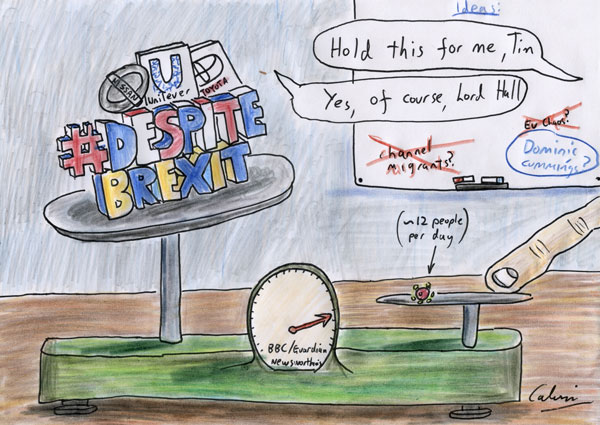 Ideas:
Hold this for me, Tin
Yes, of course, Lord Hall
NISSAN
U
Unilever
TOYOTA
#DESPITE
BREXIT
channel
migrants?
EU Chaos?
Dominic
Cummings?
(~12 people
per day)
BBC/Guardian
Calvin